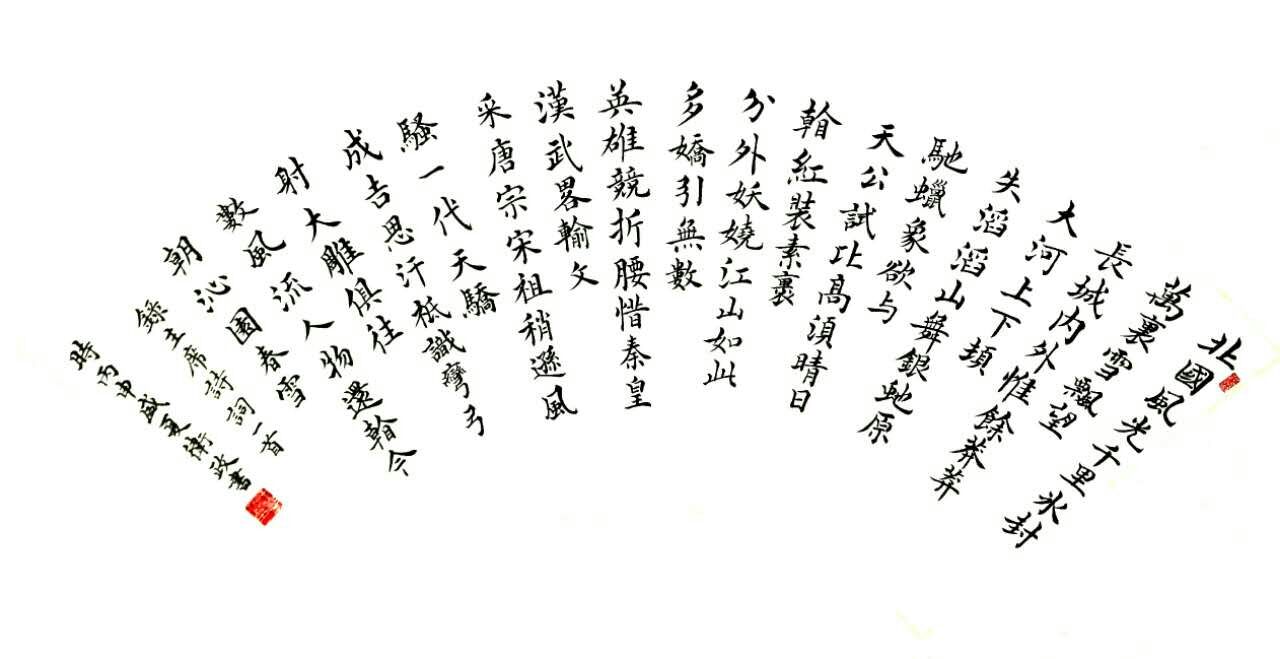 北國風光千里冰封
萬裏雪飄望
長城內外惟餘莽莽
大河上下頓
失滔滔山舞銀虵原
馳蠟象欲与
天公試比高湏晴日
看紅裝素裹
分外妖嬈江山如此
多嬌引無數
英雄競折腰惜秦皇
漢武畧輸文
采唐宗宋祖稍遜風
騷一代天驕
成吉思汗秖識彎弓
射大雕俱往
數風流人物還看今
朝沁園春雪
錄主席詩詞一首
時丙申盛夏衛政書